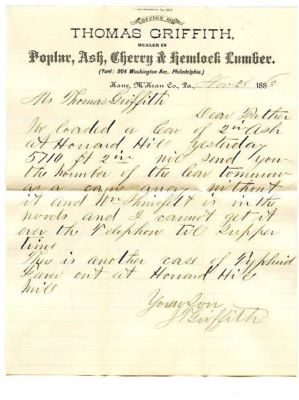 OFFICE OF
THOMAS GRIFFITH,
DEALER IN
Poplar, Ash, Cherry & Hemlock Lumber.
(Yard: 904 Washington Ave., Philadelphia.)
Kane, M'Kean Co., Pa., Nov 28 1885
Mr Thomas Griffith
Dear Father
We loaded a Car of 2 in Ash
at Howard Hill Yesterday
5710 ft 2 in will send you
the number of the Car tomorrow
as a came away without
it and Wm is in the
woods and I cannot get it
over the Telephone til Supper
time
Ther is another case of Typhuid
Fever out at Howard Hill
Mill
Your Son
J Griffith